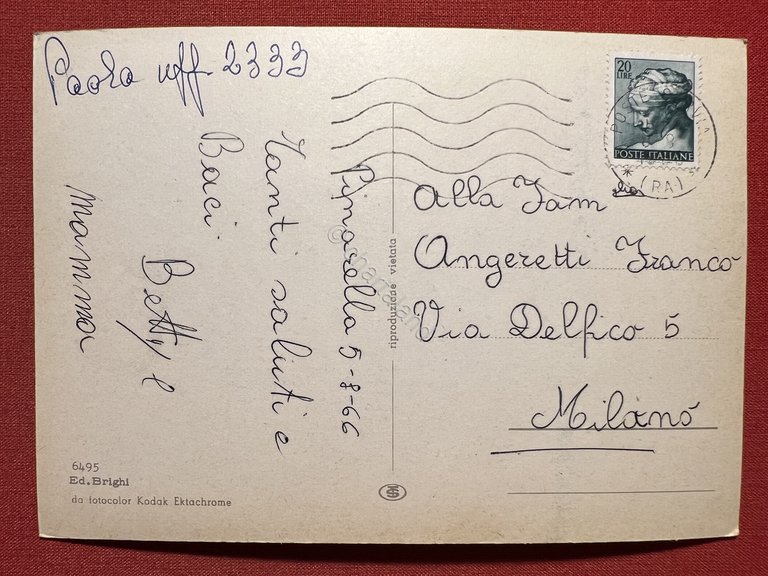 Paola uff. 2333
Pinarella 5-8-66
Tanti saluti e
Baci
Betty e
mamma
20
LIRE
POSTE ITALIANE
(RA)
Alla Fam
glia
Angeretti Franco
Via Delfico 5
Milano
riproduzione vietata
6495
Ed. Brighi
da fotocolor Kodak Ektachrome